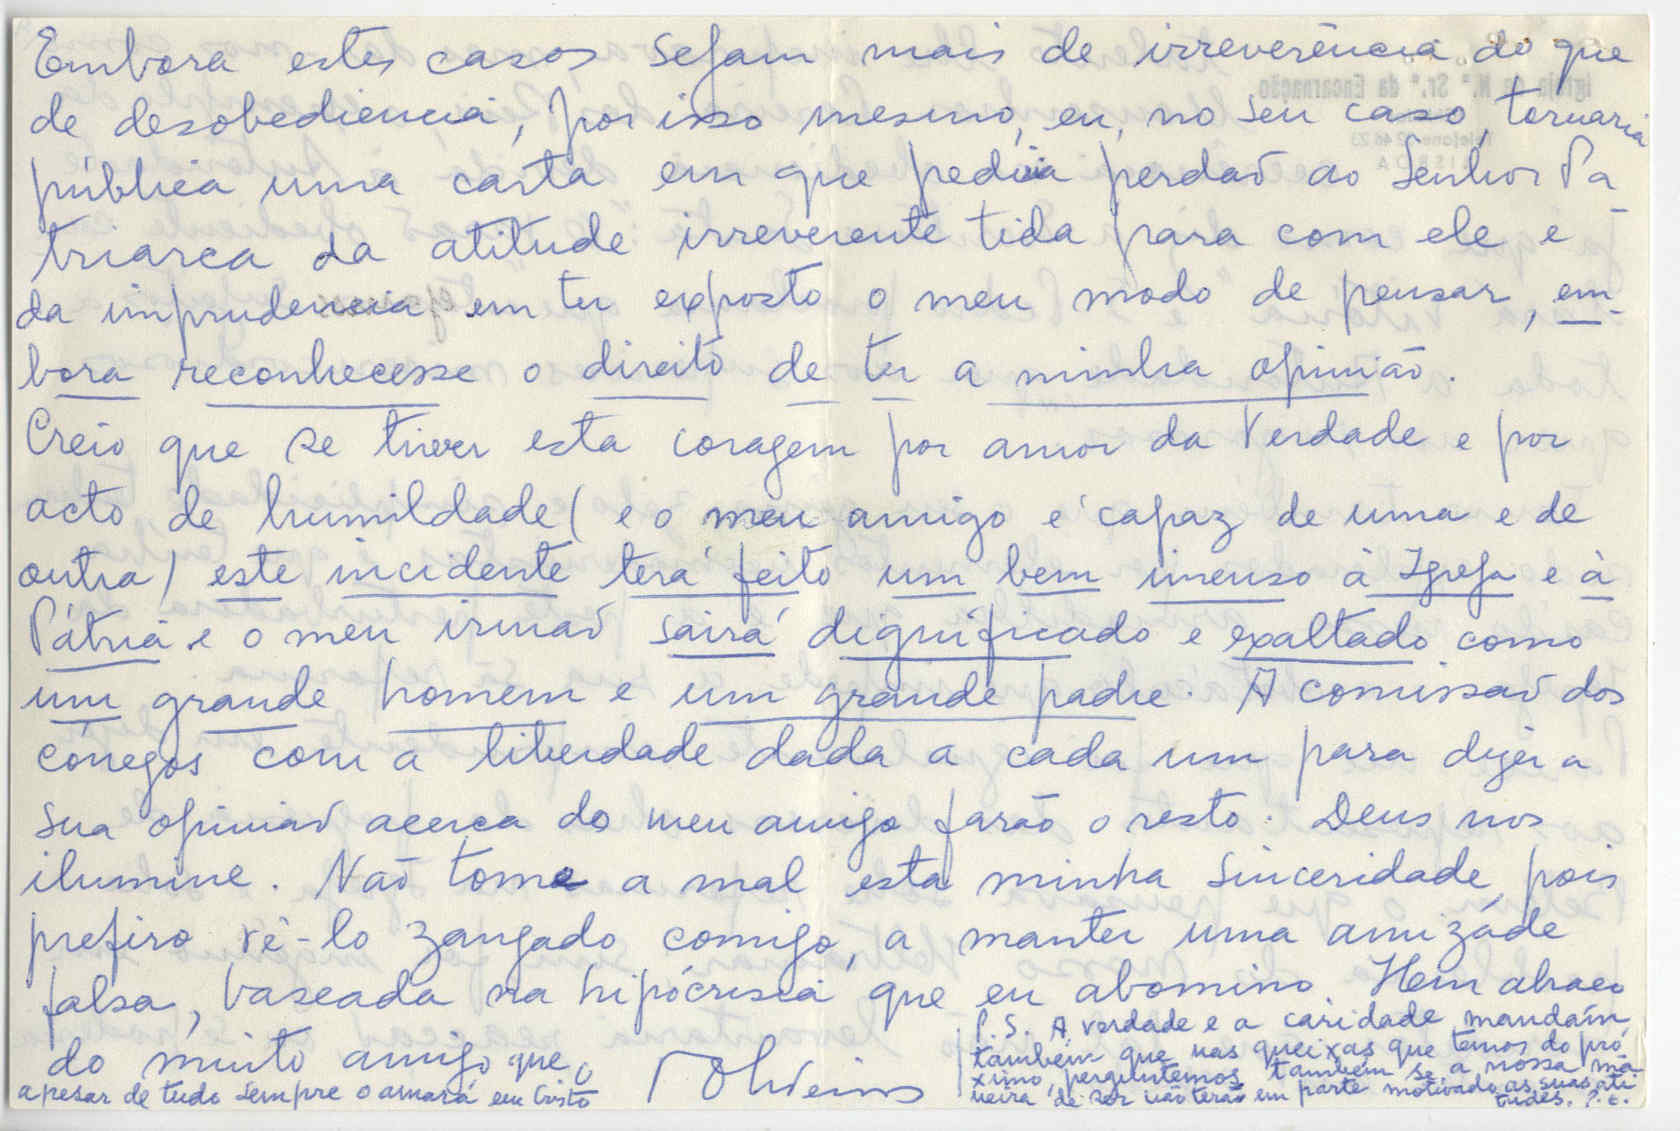 Embora estes casos sejam mais de irreverência do que
de desobediencia, por isso mesmo, eu, no seu caso, tornaria
pública uma carta em que pedia perdão ao Senhor Pa-
triarca da atitude irreverente tida para com ele e
da imprudencia em ter exposto o meu modo de pensar, em-
bora reconhecesse o direito de ter a minha opinião.
Creio que se tiver esta coragem por amor da Verdade e por
acto de humildade (e o meu amigo é capaz de uma e de
outra) este incidente terá feito um bem imenso à Igreja e à
Pátria e o meu irmão sairá dignificado e exaltado como
um grande homem e um grande padre. A comissão dos
cónegos com a liberdade dada a cada um para dizer a
sua opinião acerca do meu amigo farão o resto. Deus nos
ilumine. Não tome a mal esta minha sinceridade, pois
prefiro vê-lo zangado comigo, a manter uma amizade
falsa, baseada na hipócrisia que eu abomino. Hem abraço
do muito amigo que,
apesar de tudo sempre o amará em Cristo
P.S. A verdade e a caridade mandam,
também que nas queixas que temos do pró
ximo, perguntemos também se a nossa ma
neira de ser não terão em parte motivado as suas ati
tudes.
Igreja de N.ª Sr.ª da Encarnação
LISBOA